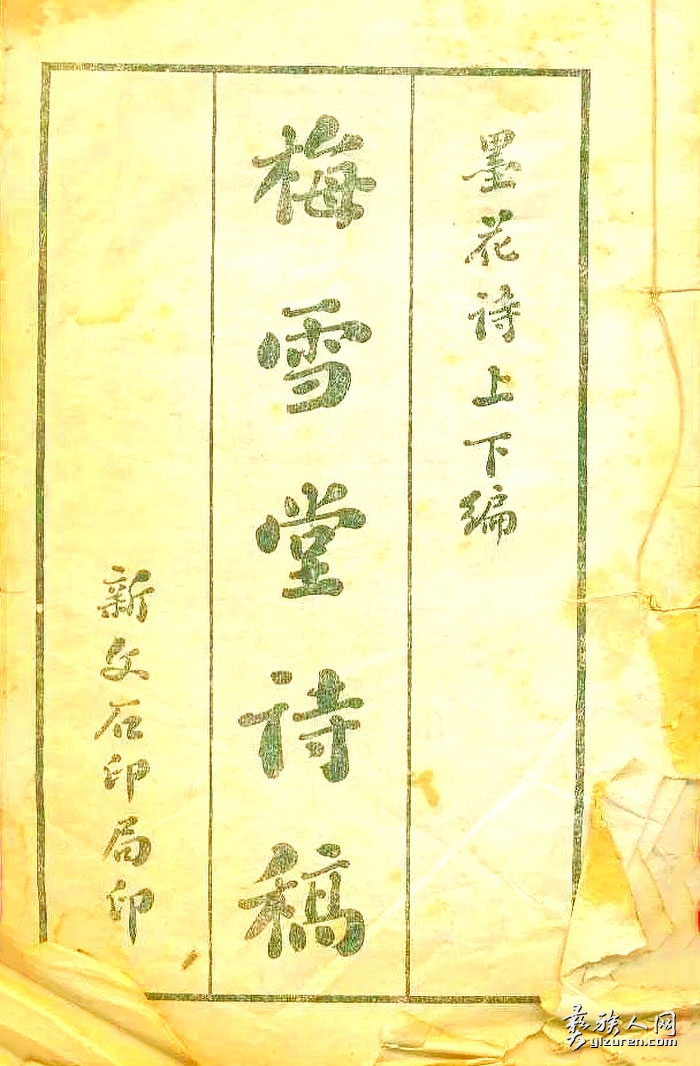 墨花诗上下编
梅雪堂诗稿
新文石印局印
彝族人网
yizuren.com